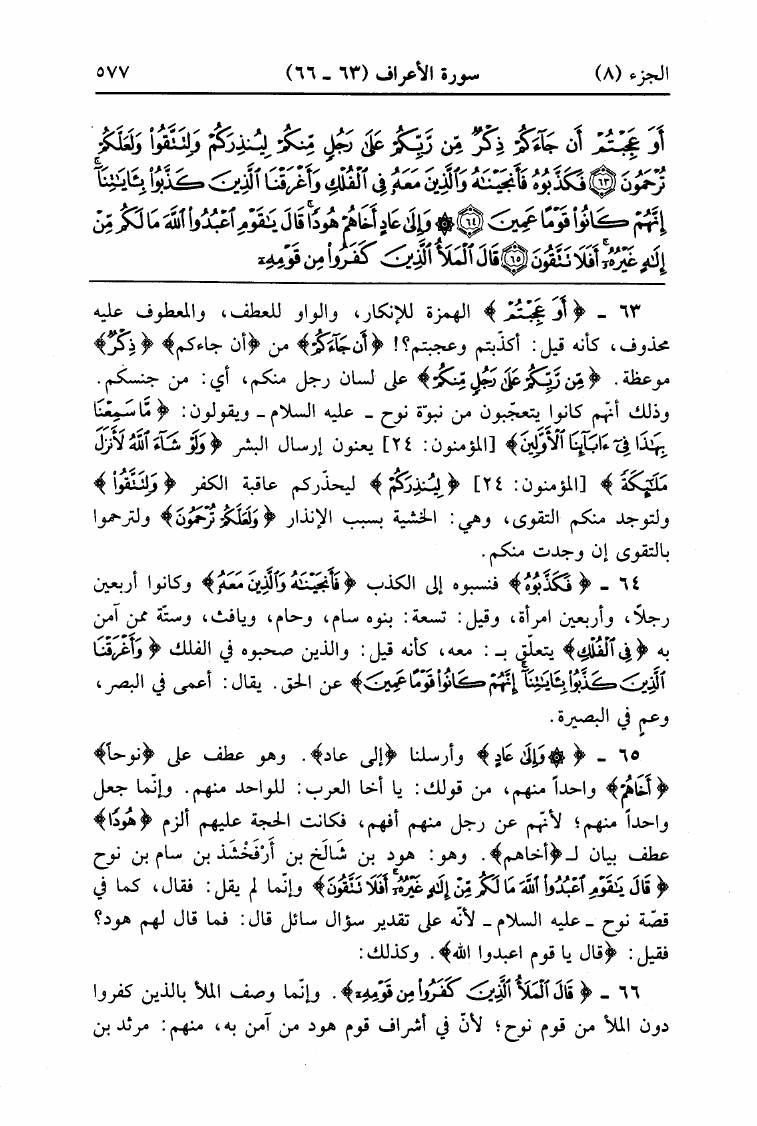 الجزء (٨) سورة الأعراف (٦٣ - ٦٦) ٥٧٧
أَوَ عَجِبْتُمْ أَن جَآءَكُمْ ذِكْرٌ مِّن رَّبِّكُمْ عَلَىٰ رَجُلٍ مِّنكُمْ لِيُنذِرَكُمْ وَلِتَتَّقُوا۟ وَلَعَلَّكُمْ
تُرْحَمُونَ ۝٦٣ فَكَذَّبُوهُ فَأَنجَيْنَٰهُ وَٱلَّذِينَ مَعَهُۥ فِى ٱلْفُلْكِ وَأَغْرَقْنَا ٱلَّذِينَ كَذَّبُوا۟ بِـَٔايَٰتِنَآ
إِنَّهُمْ كَانُوا۟ قَوْمًا عَمِينَ ۝٦٤ ۞ وَإِلَىٰ عَادٍ أَخَاهُمْ هُودًا قَالَ يَٰقَوْمِ ٱعْبُدُوا۟ ٱللَّهَ مَا لَكُم مِّنْ
إِلَٰهٍ غَيْرُهُۥٓ أَفَلَا تَتَّقُونَ ۝٦٥ قَالَ ٱلْمَلَأُ ٱلَّذِينَ كَفَرُوا۟ مِن قَوْمِهِۦٓ
٦٣ - ﴿أَوَ عَجِبْتُمْ﴾ الهمزة للإنكار، والواو للعطف، والمعطوف عليه
محذوف، كأنه قيل: أكذّبتم وعجبتم؟! ﴿أَن جَآءَكُمْ﴾ من ﴿أن جاءكم﴾ ﴿ذِكْرٌ﴾
موعظة. ﴿مِّن رَّبِّكُمْ عَلَىٰ رَجُلٍ مِّنكُمْ﴾ على لسان رجل منكم، أي: من جنسكم.
وذلك أنّهم كانوا يتعجّبون من نبوّة نوح - عليه السلام - ويقولون: ﴿مَّا سَمِعْنَا
بِهَٰذَا فِىٓ ءَابَآئِنَا ٱلْأَوَّلِينَ﴾ [المؤمنون: ٢٤] يعنون إرسال البشر ﴿وَلَوْ شَآءَ ٱللَّهُ لَأَنزَلَ
مَلَٰٓئِكَةً﴾ [المؤمنون: ٢٤] ﴿لِيُنذِرَكُمْ﴾ ليحذّركم عاقبة الكفر ﴿وَلِتَتَّقُوا۟﴾
ولتوجد منكم التقوى، وهي: الخشية بسبب الإنذار ﴿وَلَعَلَّكُمْ تُرْحَمُونَ﴾ ولترحموا
بالتقوى إن وجدت منكم.
٦٤ - ﴿فَكَذَّبُوهُ﴾ فنسبوه إلى الكذب ﴿فَأَنجَيْنَٰهُ وَٱلَّذِينَ مَعَهُۥ﴾ وكانوا أربعين
رجلاً، وأربعين امرأة، وقيل: تسعة: بنوه سام، وحام، ويافث، وستّة ممن آمن
به ﴿فِى ٱلْفُلْكِ﴾ يتعلّق بـ: معه، كأنه قيل: والذين صحبوه في الفلك ﴿وَأَغْرَقْنَا
ٱلَّذِينَ كَذَّبُوا۟ بِـَٔايَٰتِنَآ إِنَّهُمْ كَانُوا۟ قَوْمًا عَمِينَ﴾ عن الحق. يقال: أعمى في البصر،
وعمٍ في البصيرة.
٦٥ - ﴿۞ وَإِلَىٰ عَادٍ﴾ وأرسلنا ﴿إلى عاد﴾. وهو عطف على ﴿نوحاً﴾
﴿أَخَاهُمْ﴾ واحداً منهم، من قولك: يا أخا العرب: للواحد منهم. وإنّما جعل
واحداً منهم؛ لأنّهم عن رجل منهم أفهم، فكانت الحجة عليهم ألزم ﴿هُودًا﴾
عطف بيان لـ﴿أخاهم﴾. وهو: هود بن شَالَخ بن أَرْفَخْشَذ بن سام بن نوح
﴿قَالَ يَٰقَوْمِ ٱعْبُدُوا۟ ٱللَّهَ مَا لَكُم مِّنْ إِلَٰهٍ غَيْرُهُۥٓ أَفَلَا تَتَّقُونَ﴾ وإنّما لم يقل: فقال، كما في
قصّة نوح - عليه السلام - لأنّه على تقدير سؤال سائل قال: فما قال لهم هود؟
فقيل: ﴿قال يا قوم اعبدوا الله﴾. وكذلك:
٦٦ - ﴿قَالَ ٱلْمَلَأُ ٱلَّذِينَ كَفَرُوا۟ مِن قَوْمِهِۦٓ﴾. وإنّما وصف الملأ بالذين كفروا
دون الملأ من قوم نوح؛ لأنّ في أشراف قوم هود من آمن به، منهم: مرثد بن